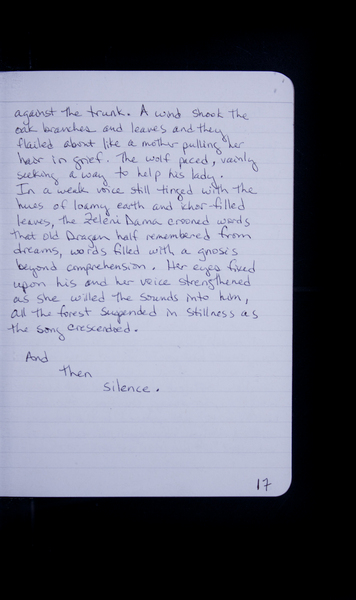 against the trunk. A wind shook the
oak branches and leaves and they
flailed about like a mother pulling her
hair in grief. The wolf paced, vainly
seeking a way to help his lady.
In a weak voice still tinged with the
hues of loamy earth and ichor filled
leaves, the Zeleni Dama crooned words
that old Dragan half remembered from
dreams, words filled with a gnosis
beyond comprehension. Her eyes fixed
upon his and her voice strengthened
as she willed the sounds into him,
all the forest suspended in stillness as
the song crescendoed.
And
then
silence.
17